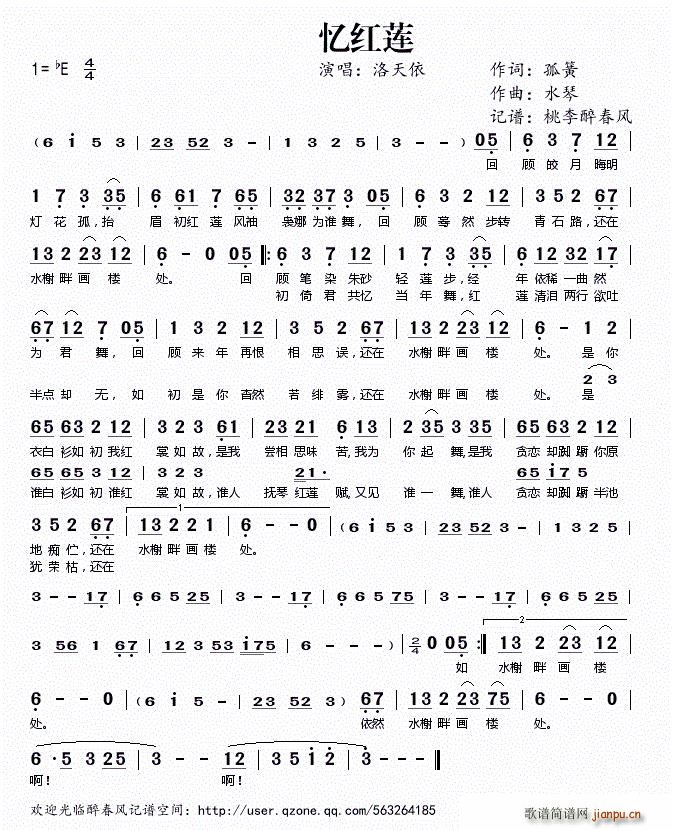 忆红莲
1=♭E 4/4
演唱：洛天依 作词：孤簧
作曲：水琴
记谱：桃李醉春风
（6 i 5 3 | 23 52 3 - | 1 3 2 5 | 3 - - ） 05 | 6 3 7 12 |
回 顾 皎 月 晦明
1 7 3 35 | 6 61 7 65 | 32 37 3 05 | 6 3 2 12 | 35 2 2 67 |
灯 花 孤，抬 眉 初红 莲 风袖 袅娜 为谁 舞，回 顾 蓦 然 步转 青石 路，还在
13 2 23 12 | 6 - 0 05 |: 6 3 7 12 | 1 7 3 35 | 6 12 32 17 |
水榭 畔 画 楼 处。 回 顾 笔 染 朱砂 轻 莲 步，经 年 依稀 一曲 然
初 倚 君 共忆 当 年 舞，红 莲 清泪 两行 欲吐
67 12 7 05 | 1 3 2 12 | 3 52 2 67 | 13 2 23 12 | 6 - 1 2 |
为 君 舞，回 顾 来 年 再恨 相 思 误，还在 水榭 畔 画 楼 处。 是 你
半点 却 无，如 初 是 你 杳然 若 绯 雾，还在 水榭 畔 画 楼 处。 是
2 3
65 65 2 12 | 3 2 3 61 | 23 21 6 56 | 2 35 3 35 | 65 63 2 12 |
衣白 衫如 初 我红 裳 如 故，是我 尝相 思味 苦，我为 你 起 舞，是我 贪恋 却踟 蹰 你原
65 65 6 12 | 3 2 3 21· 65 i7 5
谁白 衫如 初 谁红 裳 如 故，谁人 抚琴 红莲 赋，又见 谁 一 舞，谁人 贪恋 却踟 蹰 半池
1
3 5 2 67 | 13 2 2 21 | 6 - - 0 |（6 i 53 | 23 52 3 - | 1 3 2 5 |
地 痴伫，还在 水榭 畔 画 楼 处。
犹 荣枯，还在
3 - - 17 | 6 6 5 25 | 3 - - 17 | 6 6 5 75 | 3 - - 17 | 6 6 5 25 |
2
3 56 1 67 | 12 3 53 i75 | 6 - - - ）| 2/4 0 05 :| 13 2 23 12 |
如 水榭 畔 画 楼
6 - - 0 |（6 i 5 - | 23 52 3 ） 67 | 13 2 23 75 | 6 - - 0 |
处。 依然 水榭 畔 画 楼 处。
6 · 5 3 25 | 3 - - 12 | 3 5 i 2 | 3 - - - ‖
啊！ 啊！
欢迎光临醉春风记谱空间：http://user.qzone.qq.com/563264185
歌谱简谱网 jianpu.cn